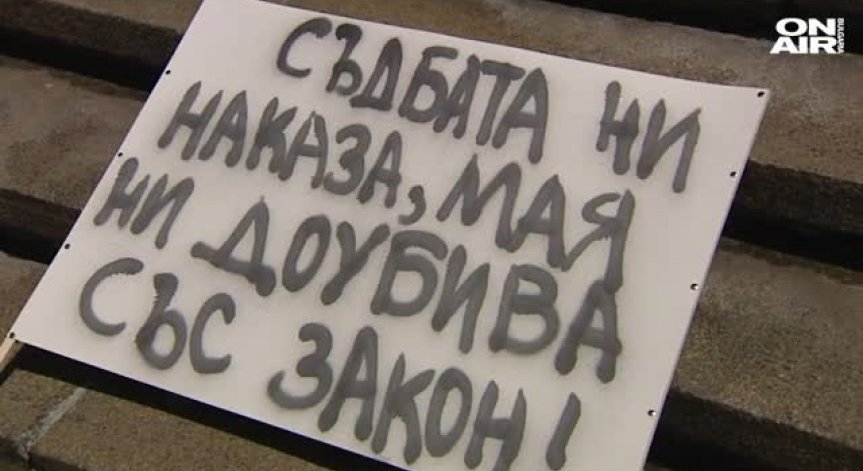 СЪДБАТА НИ
НАКАЗА, МАЯ
НИ ДОУБИВА
СЪС ЗАКОН!
ON
AIR
BULGARIA